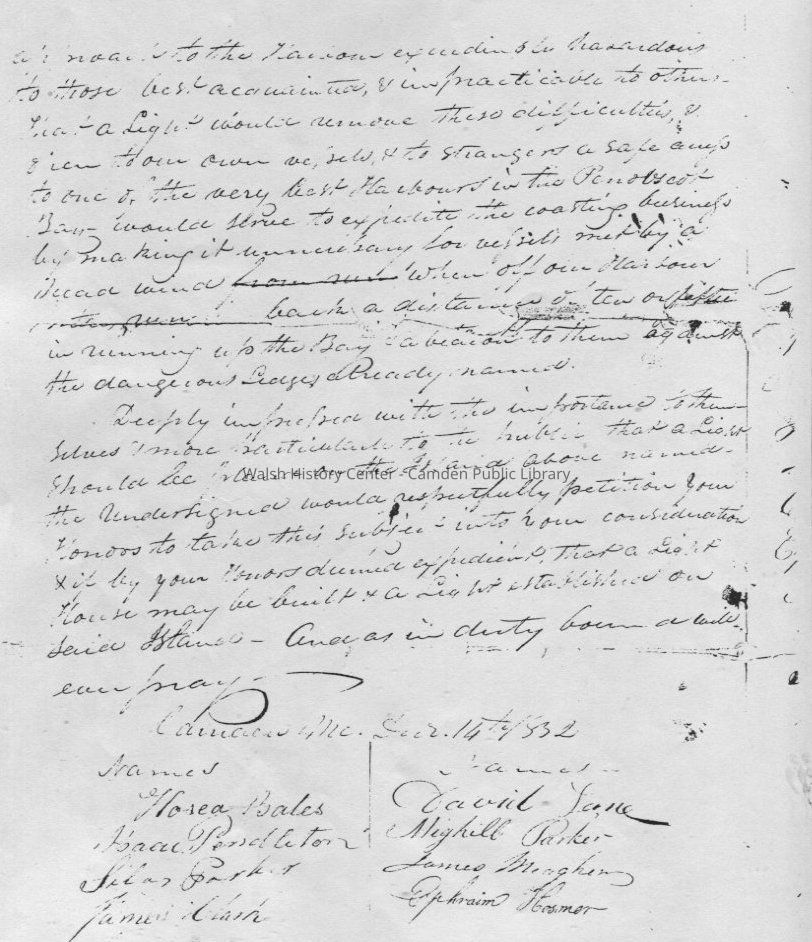 to the Harbour exceeding hazardous
to those best acquainted, & impracticable to others
that a Light would remove these difficulties, &
to our own vessels, & to strangers a safe
to one of the very best Harbours in the Penobscot
Bay would serve to expedite the coasting business
by making it unnecessary for vessels met by a
head wind from when off our Harbour
back a distance of ten or
in running up the Bay & a beacon to them against
the dangerous Ledges already named.
Deeply impressed with the importance to them-
selves & more particularly to the public that a Light
should be on the Island above named
Walsh History Center - Camden Public Library
the Undersigned would respectfully petition your
Honors to take this subject into your consideration
& if by your Honors deemed expedient, that a Light
House may be built & a Light established on
said Island - And as in duty bound will
ever pray.
Camden Me. Decr. 14th 1832
Names
Names
Hosea Bates
David Lane
Isaac Pendleton
Mighill Parker
Silas Parker
James Meagher
James Clark
Ephraim Hosmer